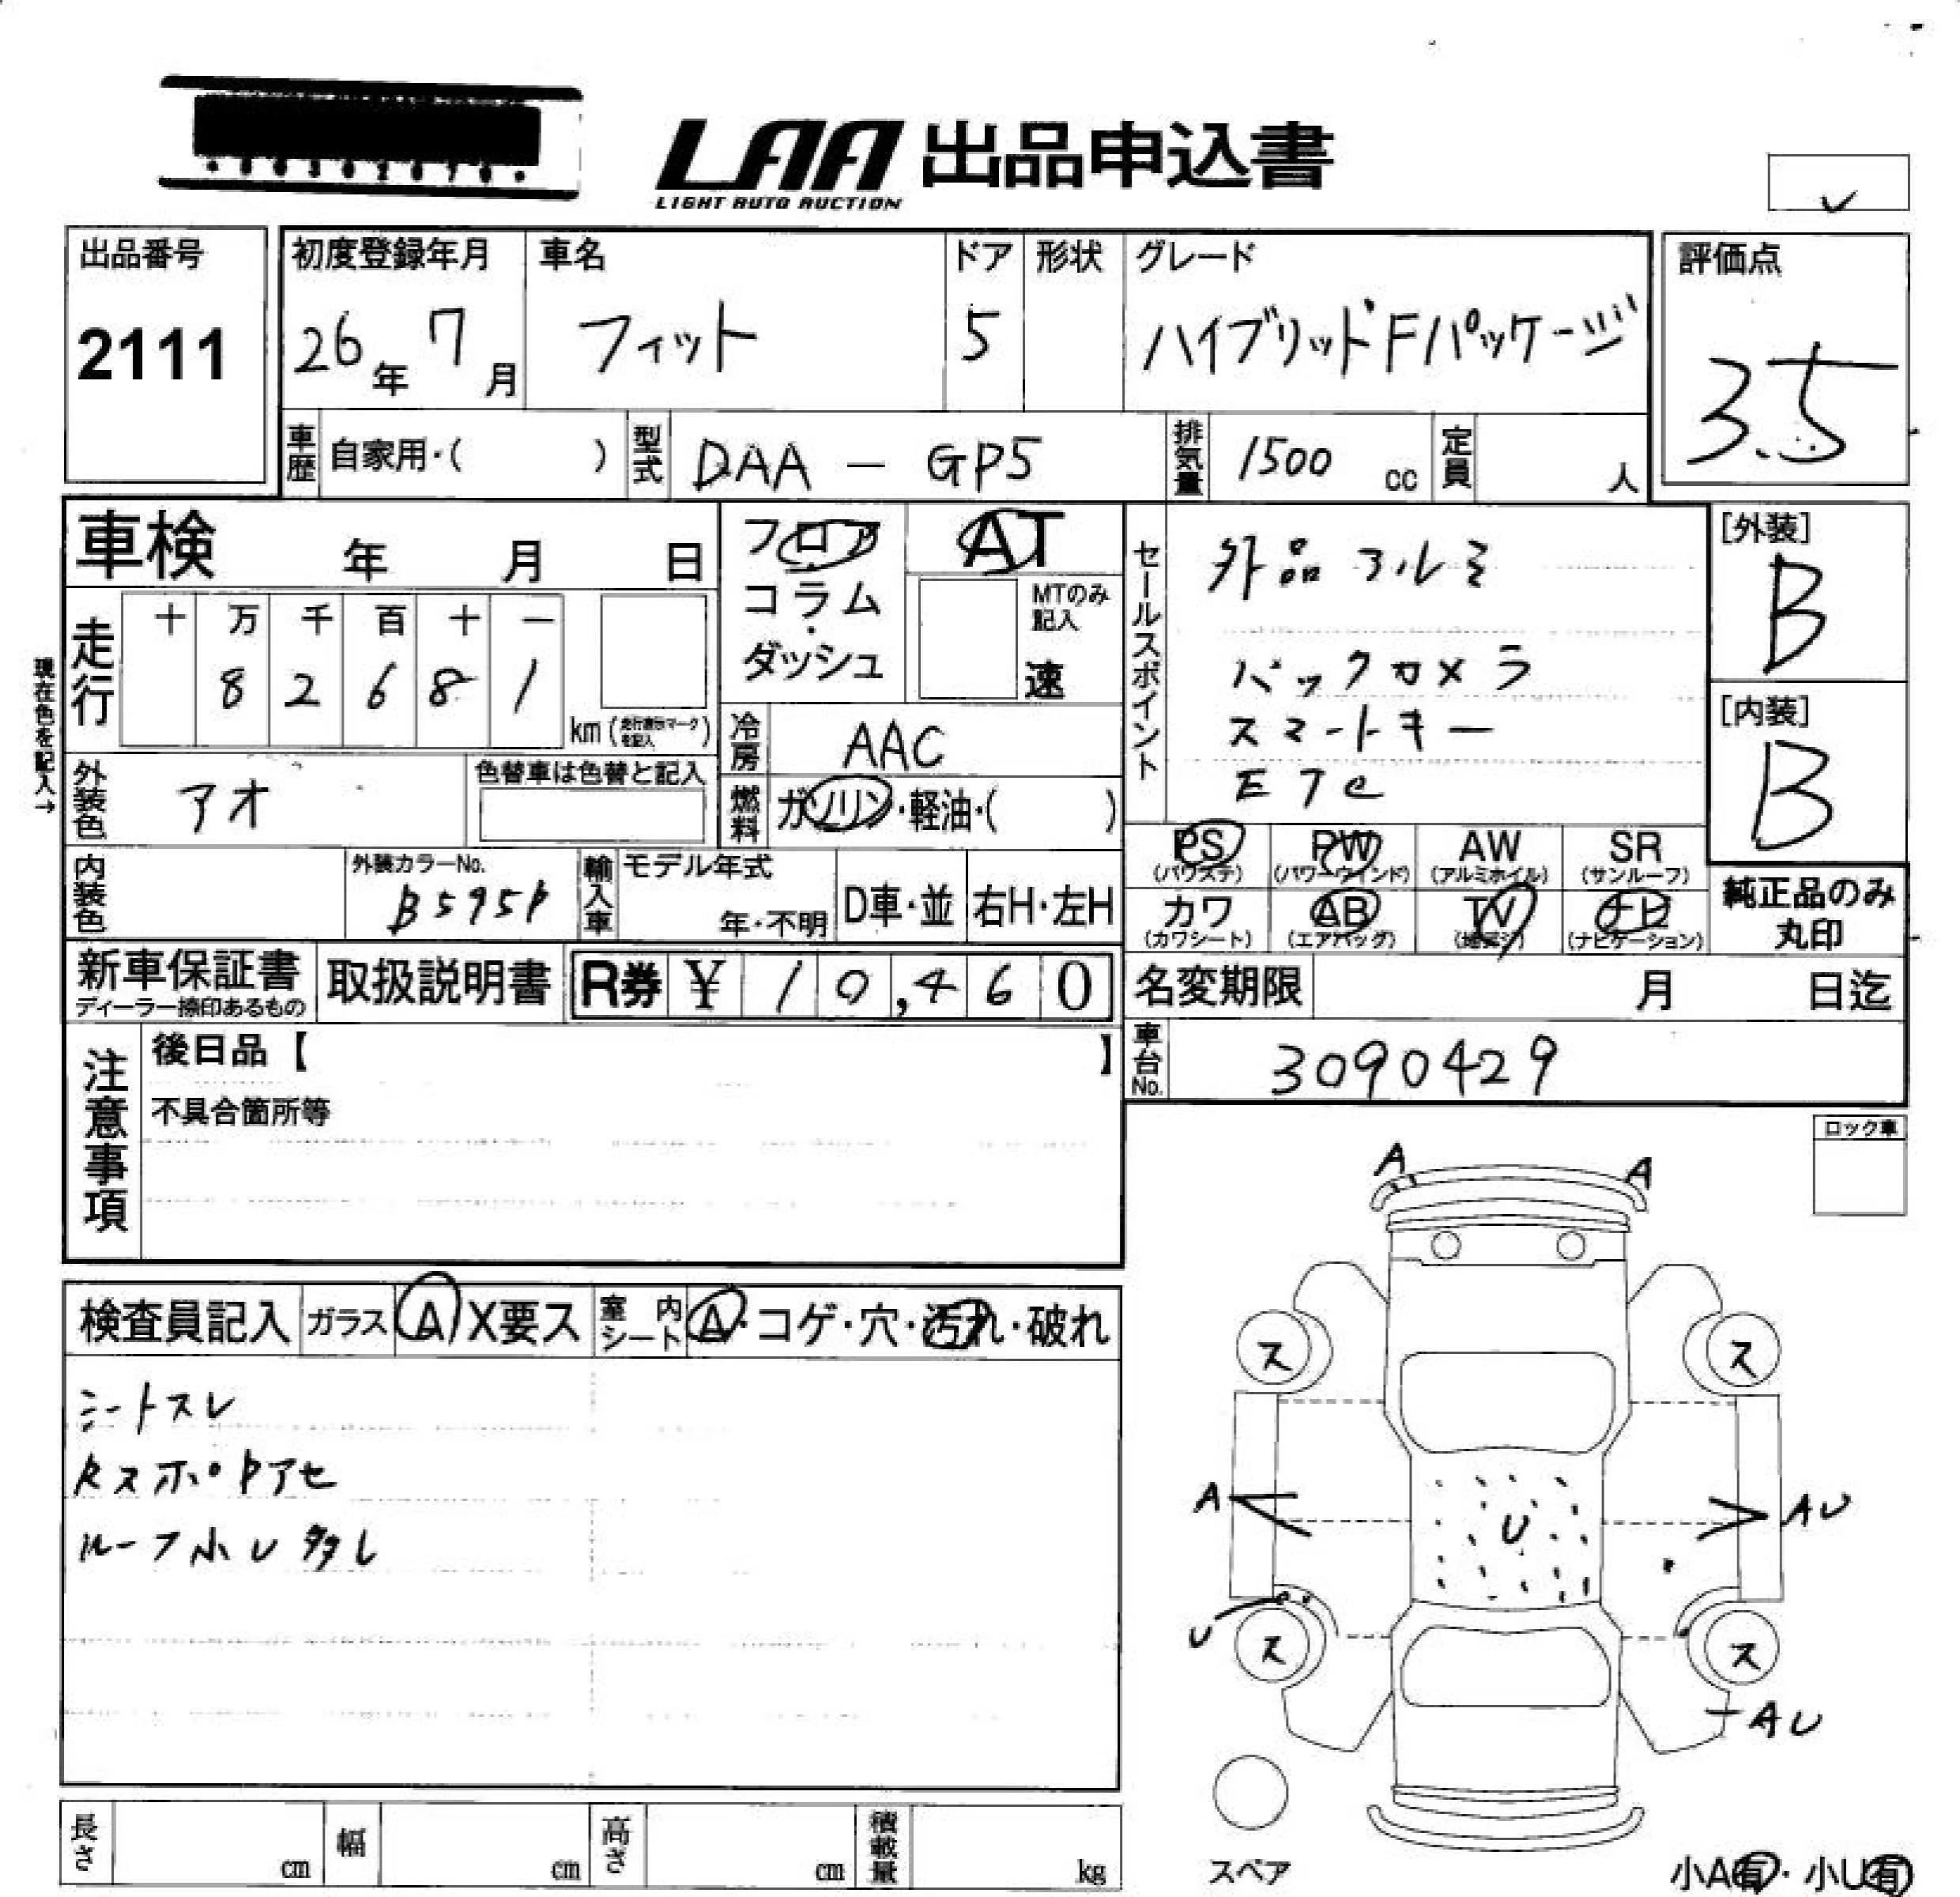 LAA 出品申込書
LIGHT AUTO AUCTION
出品番号
2111
初度登録年月
26年 7月
車名
フィット
ドア
5
形状
グレード
ハイブリッドFパッケージ
評価点
3.5
車歴
自家用・( )
型式
DAA - GP5
排気量
1500 cc
定員
人
車検 年 月 日
フロア
コラム
・
ダッシュ
AT
MTのみ
記入
速
セールスポイント
外品アルミ
バックカメラ
スマートキー
ETC
[外装]
B
[内装]
B
現在色を記入→
走行
十 万 千 百 十 一
8 2 6 8 1
km (走行表示マークを記入)
冷房
AAC
燃料
ガソリン・軽油・( )
外装色
アオ
色替車は色替と記入
PS
(パワステ)
PW
(パワーウインド)
AW
(アルミホイル)
SR
(サンルーフ)
カワ
(カワシート)
AB
(エアバッグ)
TV
ナビ
(ナビゲーション)
純正品のみ
丸印
内装色
外装カラーNo.
B595P
輸入車
モデル年式
年・不明
D車・並
右H・左H
新車保証書
ディーラー捺印あるもの
取扱説明書
R券 ¥ 10,460
名変期限 月 日迄
車台No.
3090429
注意事項
後日品【 】
不具合箇所等
ロック車
検査員記入
ガラス
A X要ス
室内
シート
A・コゲ・穴・汚れ・破れ
シートスレ
ルーフ小U多し
A A
ス ス
A U AU
U
ス ス
AU
スペア
小A有・小U有
長さ cm
幅 cm
高さ cm
積載量 kg